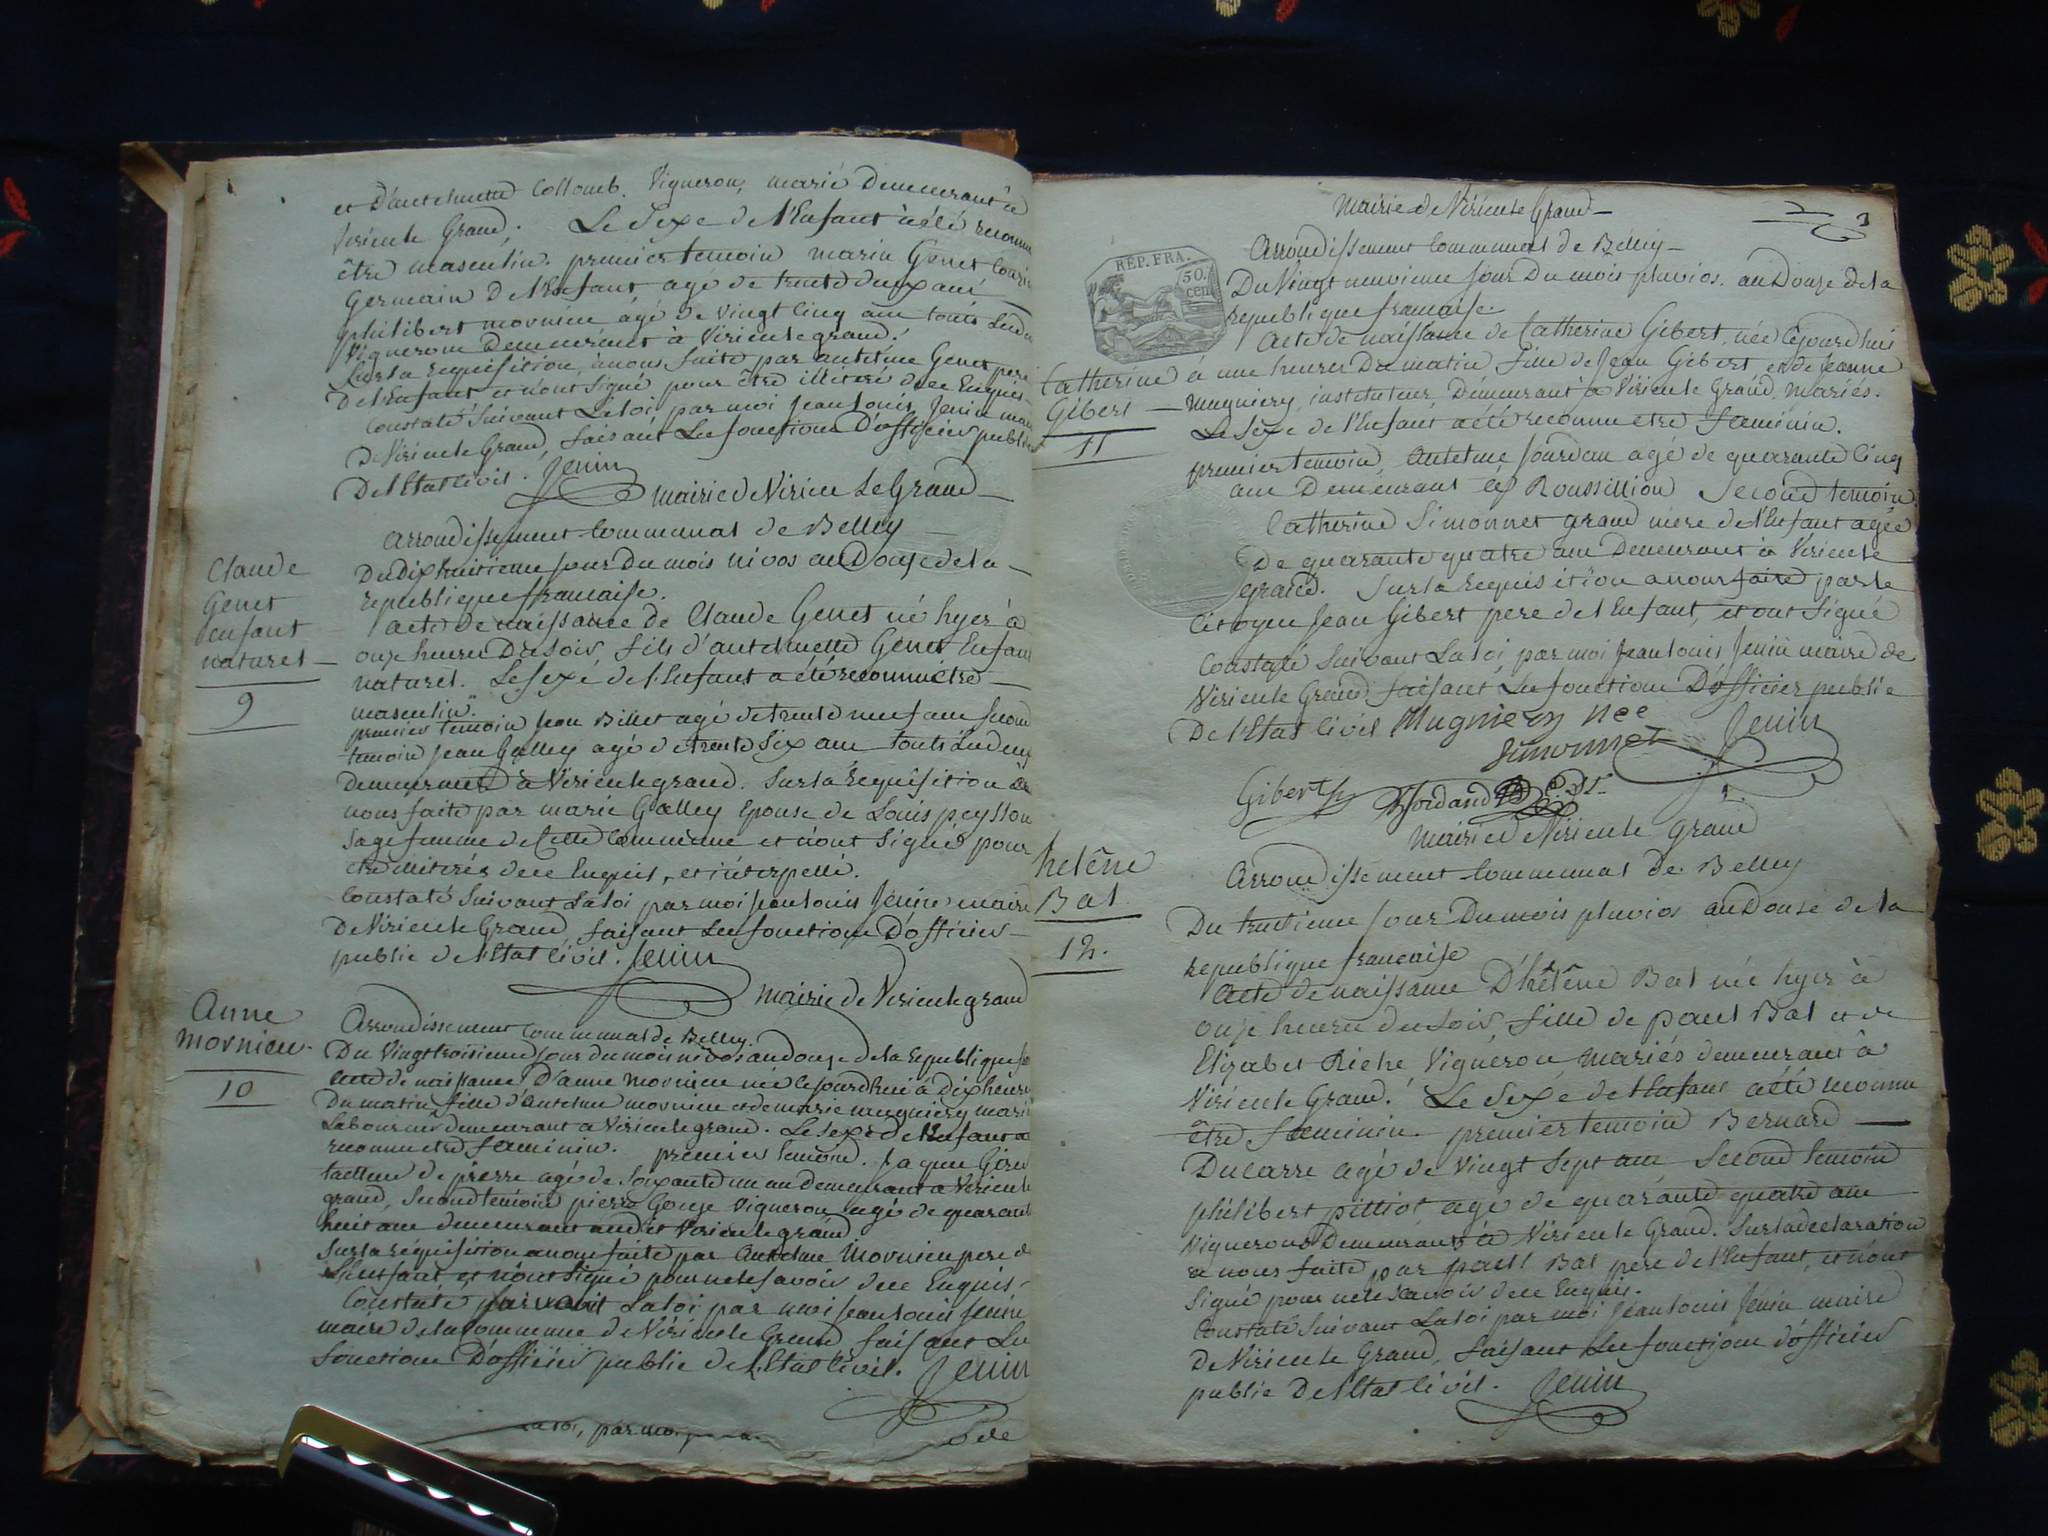 et d'antelmette Collomb. Vigneron, marié Demeurant à
Virieu le Grand. Le Sexe de l'Enfant à été reconnu
être masculin. premier temoin marin Genet Cousin
Germain De l'Enfant agé de trente deux ans
philibert mornieu agé de vingt cinq ans touts
Vignerons Demeurant à Virieu le grand.
Sur la requisition à nous faite par antelme Genet pere
De l'Enfant et n'ont Signé pour être illitéré de ce Enquis
Constaté Suivant La loi par moi jean louis Jenin maire
De Virieu le Grand, faisant Les fonctions D'officier public
De l'Etat Civil. Jenin
Mairie de Virieu Le Grand
Arrondissement Communal de Belley
Du dix huitieme jour Du mois nivos an Douze de la
republique francaise.
Acte de naissance de Claude Genet né hyer à
onze heures Du Soir, fils d'antelmette Genet Enfant
naturel. Le Sexe de l'Enfant a été reconnu être
masculin.
premier temoin jean Billet agé de trente neuf ans second
temoin jean Galley agé de trente Six ans touts Les deux
Demeurant à Virieu le grand. Sur la requisition à
nous faite par marie Galley Epouse de Louis peysson
Sage femme de Cette Commune et n'ont Signé pour
etre illiterés de ce Enquis, et interpellé.
Constaté Suivant La loi par moi jean louis Jenin maire
De Virieu le Grand, faisant Les fonctions D'officier
public de l'Etat Civil. Jenin
Claude
Genet
enfant
naturel
9
Mairie de Virieu le grand
Arrondissement Communal de Belley.
Du Vingt troisieme jour du mois nivos an douze de la republique
Acte de naissance D'anne mornieu née Cejourdhui à dix heures
Du matin fille d'antelme mornieu et de marie mugniery mariés
Laboureur demeurant a Virieu le grand. Le Sexe de l'Enfant a
reconnu etre feminin. premier temoin. Jaque
de pierre agé de Soixante un an demeurant a Virieu le
grand, Second temoin pierre Gonze Vigneron agé de quarante
huit ans demeurant audit Virieu le grand
Sur la réquisition a nous faite par Antelme Mornieu pere de
L'Enfant et n'ont Signé pour ne le Savoir de ce Enquis.
Constaté Suivant La loi par moi jean louis Jenin
maire de la Commune de Virieu le Grand faisant Les
fonctions D'officier public de l'Etat Civil. Jenin
Anne
Mornieu.
10
la loi, par moi
Mairie de Virieu le Grand
3
Arrondissement Communal de Belley
REP. FRA.
50.
cen
Du Vingt neuvieme jour Du mois pluvios. an Douze de la
republique francaise.
Acte de naissance de Catherine Gibert, née Cejourdhui
à une heures Du matin fille de Jean Gibert et de Jeanne
mugniery, instituteur, Demeurant à Virieu le Grand, mariés.
Le Sexe de l'Enfant a été reconnu etre feminin.
premier temoin Antelme Jourdan agé de quarante Cinq
ans Demeurant à Roussillion Second temoin
Catherine Simonnet grand mere de l'Enfant agée
De quarante quatre ans Demeurant à Virieu le
grand. Sur la requisition a nous faite par le
Citoyen Jean Gibert pere de l'Enfant, et ont Signé
Constaté Suivant La loi par moi Jean louis Jenin maire de
Virieu le Grand faisant Les fonctions D'officier public
De l'Etat Civil Mugniery née
Simonnet Jenin
Giberth Jordand
Catherine
Gibert
11
Mairie de Virieu le Grand
Arrondissement Communal de Belley
Du trentieme jour Du mois pluvios an Douse de la
republique francaise
Acte de naissance D'hélêne Bal née hyer à
onze heures du soir, fille de paul Bal et de
Elizabet Riche Vigneron mariés demeurant à
Virieu le Grand. Le Sexe de l'Enfant a été reconnu
être feminin. premier temoin Bernard
Ducarre agé de Vingt Sept ans Second temoin
philibert pittiot agé de quarante quatre ans
Vignerons Demeurant à Virieu le Grand. Sur la declaration
a nous faite par paul Bal pere de l'Enfant, et n'ont
Signé pour ne le Savoir de ce Enquis.
Constaté Suivant La loi par moi Jean louis Jenin maire
De Virieu le Grand, faisant Les fonctions D'officier
public De l'Etat Civil. Jenin
helêne
Bal.
12.